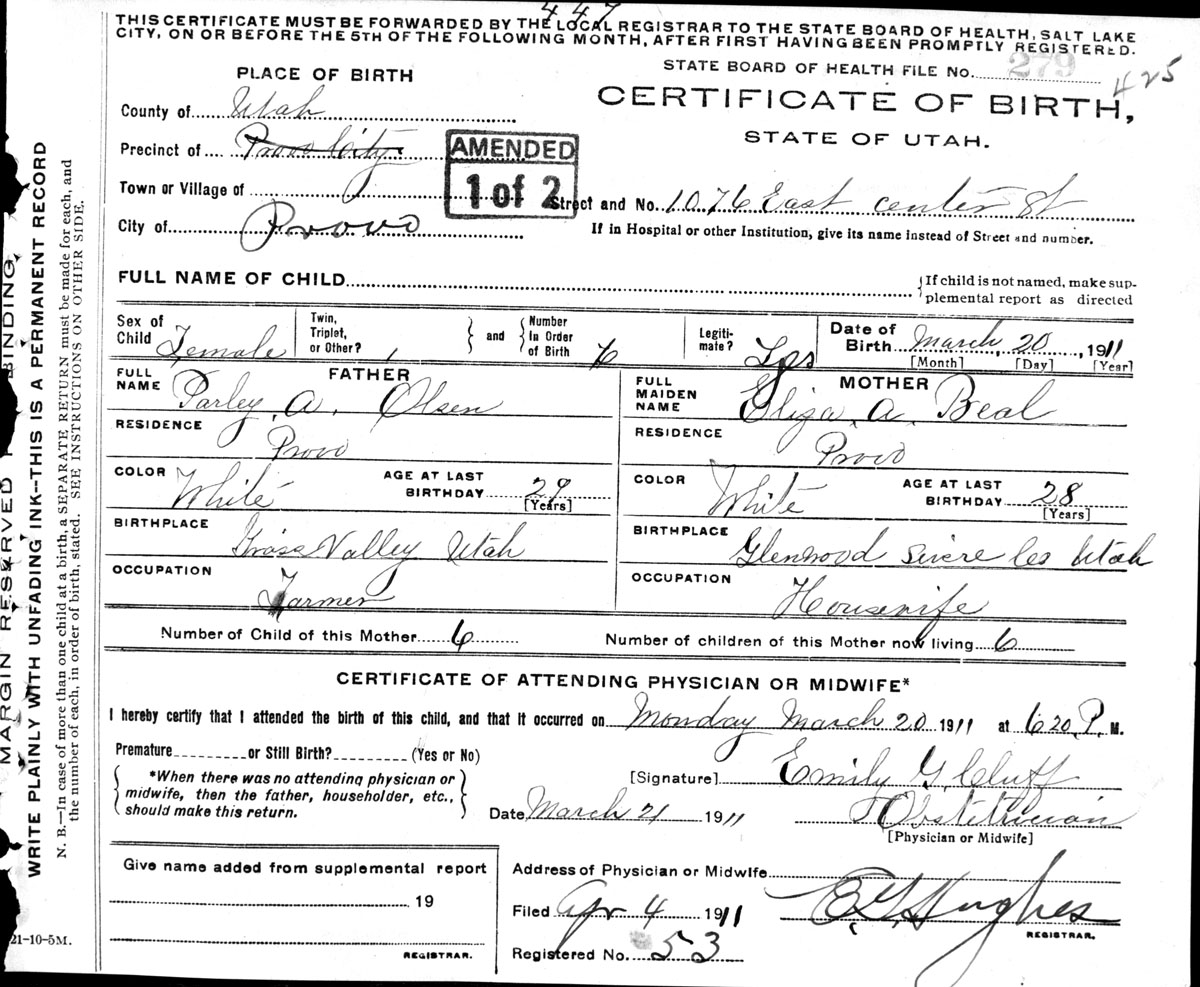 447
THIS CERTIFICATE MUST BE FORWARDED BY THE LOCAL REGISTRAR TO THE STATE BOARD OF HEALTH, SALT LAKE
CITY, ON OR BEFORE THE 5TH OF THE FOLLOWING MONTH, AFTER FIRST HAVING BEEN PROMPTLY REGISTERED.
STATE BOARD OF HEALTH FILE No. 279 425
PLACE OF BIRTH
CERTIFICATE OF BIRTH,
STATE OF UTAH.
County of Utah
Precinct of Provo City
AMENDED
1 of 2
Town or Village of
Street and No. 1076 East center St
City of Provo
If in Hospital or other Institution, give its name instead of Street and number.
FULL NAME OF CHILD
{If child is not named, make sup-
plemental report as directed
Sex of Child Female
Twin, Triplet, or Other?
and
Number In Order of Birth 6
Legiti- mate? Yes
Date of Birth March, 20, 1911
[Month] [Day] [Year]
FATHER
FULL NAME Parley, A. Olsen
MOTHER
FULL MAIDEN NAME Eliza, A. Beal
RESIDENCE Provo
RESIDENCE Provo
COLOR White
AGE AT LAST BIRTHDAY 29 [Years]
COLOR White
AGE AT LAST BIRTHDAY 28 [Years]
BIRTHPLACE Grass Valley Utah
BIRTHPLACE Glenwood Utah
OCCUPATION Farmer
OCCUPATION Housewife
Number of Child of this Mother 6
Number of children of this Mother now living 6
CERTIFICATE OF ATTENDING PHYSICIAN OR MIDWIFE*
I hereby certify that I attended the birth of this child, and that it occurred on Monday March 20 1911 at 6 20 P. M.
Premature or Still Birth? (Yes or No)
*When there was no attending physician or
midwife, then the father, householder, etc.,
should make this return.
[Signature] Emily G. Cluff
Date March 21 1911
Obstetrician
[Physician or Midwife]
Give name added from supplemental report
19
REGISTRAR.
Address of Physician or Midwife
Filed Apr 4 1911
E. G. Hughes
REGISTRAR.
Registered No. 53
21-10-5M.
MARGIN RESERVED BINDING,
WRITE PLAINLY WITH UNFADING INK—THIS IS A PERMANENT RECORD
N. B.—In case of more than one child at a birth, a SEPARATE RETURN must be made for each, and
the number of each, in order of birth, stated. SEE INSTRUCTIONS ON OTHER SIDE.